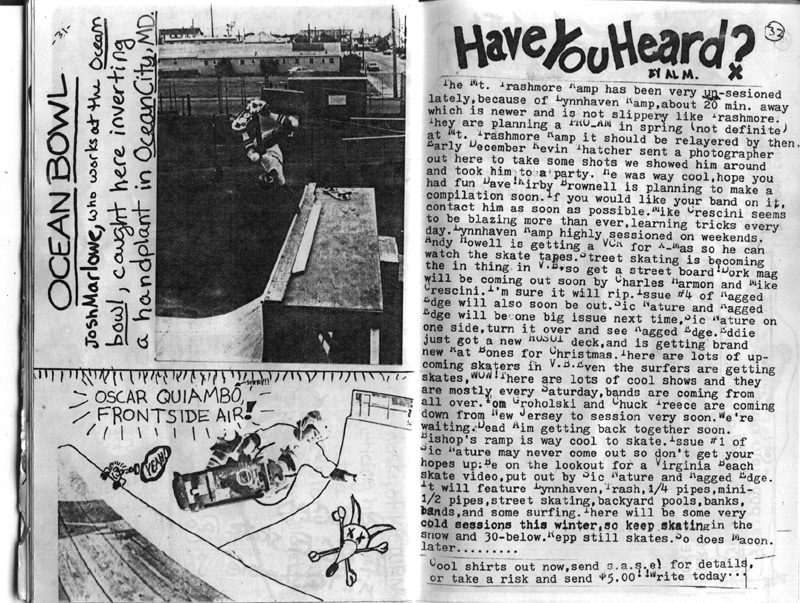 -31-
OCEAN BOWL
Josh Marlowe, who works at the Ocean
bowl, caught here inverting
a handplant in Ocean City, MD.
SORRY!!
OSCAR QUIAMBO,
FRONTSIDE AIR!
YEAH!
32
Have You Heard?
BY AL M.
The Mt. Trashmore Ramp has been very un-sesioned
lately, because of Lynnhaven Ramp, about 20 min. away
which is newer and is not slippery like Trashmore.
They are planning a PROLAM in spring (not definite)
at Mt. Trashmore Ramp it should be relayered by then.
Early December Kevin Thatcher sent a photographer
out here to take some shots we showed him around
and took him to a party. He was way cool, hope you
had fun Dave! Kirby Brownell is planning to make a
compilation soon. If you would like your band on it,
contact him as soon as possible. Mike Crescini seems
to be blazing more than ever, learning tricks every
day. Lynnhaven Ramp highly sessioned on weekends.
Andy Howell is getting a VCR for X-Mas so he can
watch the skate tapes. Street skating is becoming
the in thing in V.B. so get a street board! Dork mag
will be coming out soon by Charles Harmon and Mike
Crescini. I'm sure it will rip. Issue #4 of Ragged
Edge will also soon be out. Sic Nature and Ragged
Edge will be one big issue next time, Sic Nature on
one side, turn it over and see Ragged Edge. Eddie
just got a new HOSOI deck, and is getting brand
new Rat Bones for Christmas. There are lots of up-
coming skaters in V.B. Even the surfers are getting
skates, WOW! There are lots of cool shows and they
are mostly every Saturday, bands are coming from
all over. Tom Groholski and Chuck Treece are coming
down from New Jersey to session very soon. We're
waiting. Dead Aim getting back together soon.
Bishop's ramp is way cool to skate. Issue #1 of
Sic Nature may never come out so don't get your
hopes up: Be on the lookout for a Virginia Beach
skate video, put out by Sic Nature and Ragged Edge.
It will feature Lynnhaven, Trash, 1/4 pipes, mini-
1/2 pipes, street skating, backyard pools, banks,
bands, and some surfing. There will be some very
cold sessions this winter, so keep skating in the
snow and 30-below. Kepp still skates. So does Macon.
later.........
Cool shirts out now, send s.a.s.e! for details,
or take a risk and send $5.00!! Write today...